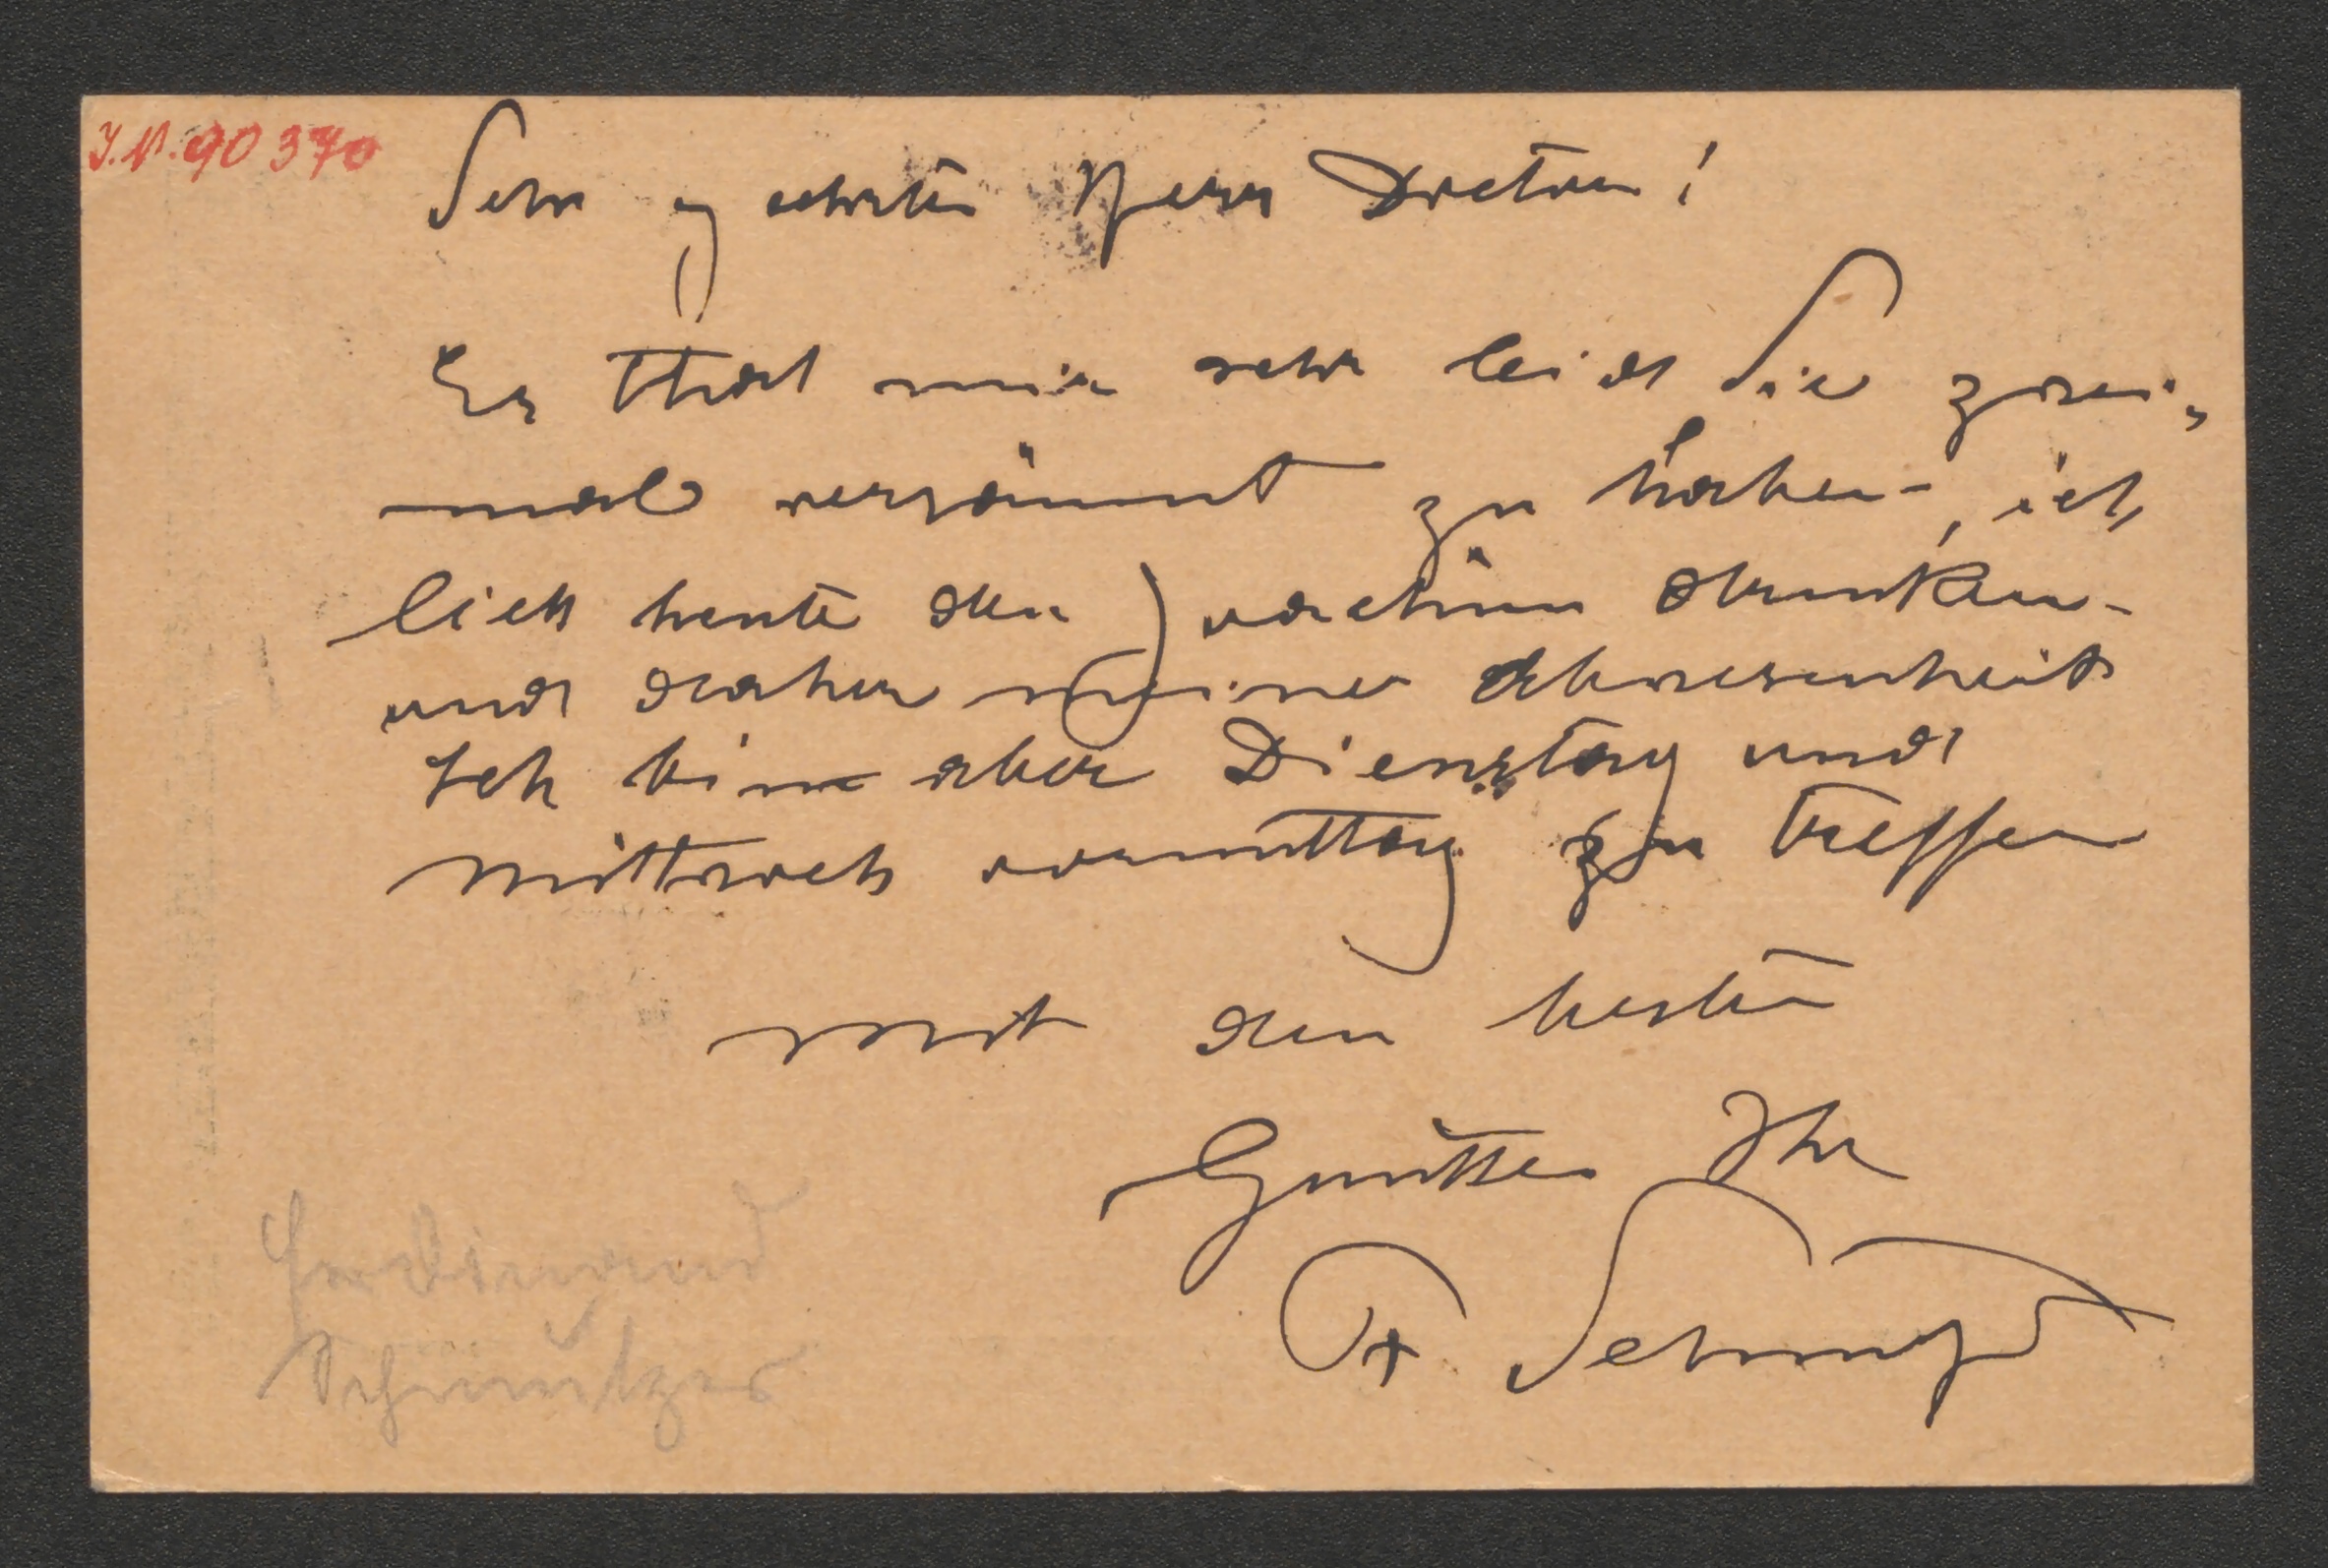 J.N. 90370
Sehr geehrter Herr Doctor!
Es that mir sehr leid Sie zwei-
mal versäumt zu haben, ich
ließ heute den Joachim drucken
und daher meine Abwesenheit
Ich bin aber Dienstag und
Mittwoch vormittag zu treffen
mit den besten
Grüßen Ihr
F. Schmutzer
Ferdinand
Schmutzer